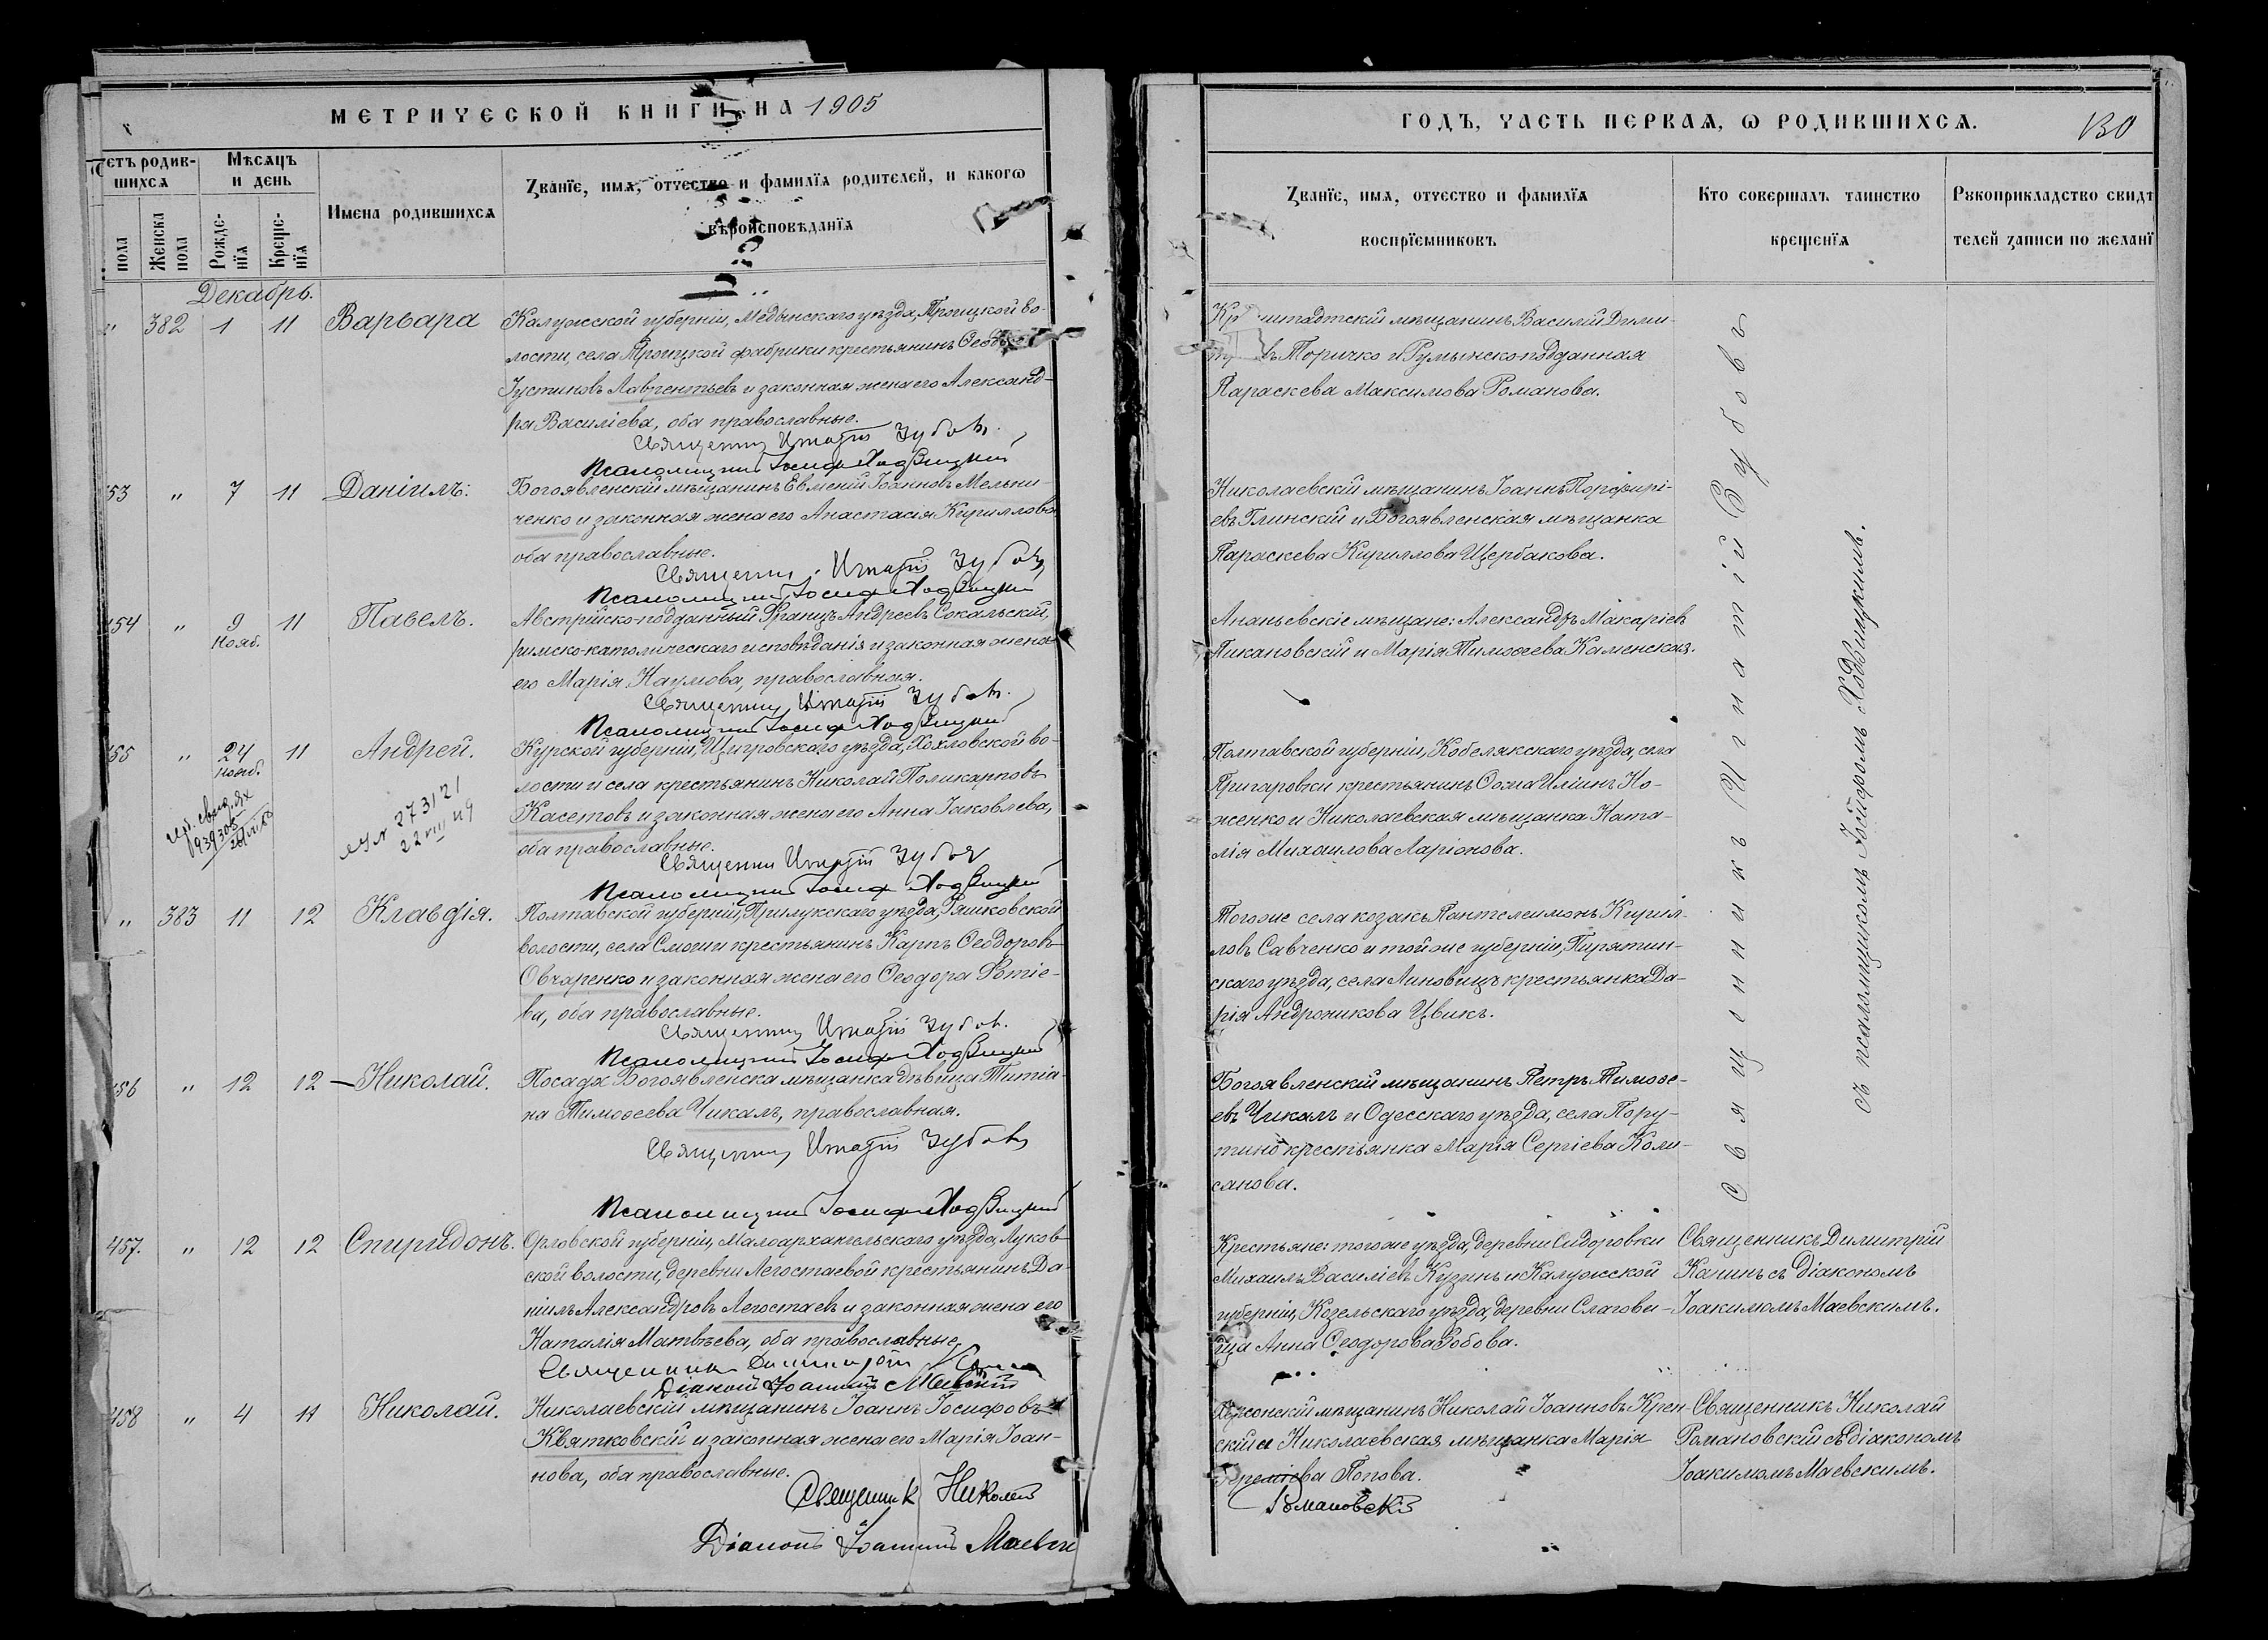 МЕТРИЧЕСКОЙ КНИГИ НА 1905
етъ родив-
шихсѧ
пола
Женска пола
Мѣсѧцъ
и день
Рожде-
нїѧ
Креще-
нїѧ
Имена родившихсѧ
Ꙁванїе, имѧ, отчество и фамилїѧ родителей, и какогѡ
вѣроисповѣданїѧ
Декабрь.
" 382 1 11 Варвара
Калужской губерніи, Медынскаго уѣзда, Троицкой во-
лости, села Троицкой фабрики крестьянинъ
Іустиновъ Лаврентьевъ и законная жена его Александ-
ра Василіева, оба православные.
Священникъ Игнатій Зубовъ.
Псаломщикъ Іосифъ Ходвицкій
53 " 7 11 Даніилъ:
Богоявленскій мѣщанинъ Евменій Іоанновъ Мельни-
ченко и законная жена его Анастасія Кириллова
оба православные.
Священникъ Игнатій Зубовъ
Псаломщикъ Іосифъ Ходвицкій
454 " 9 Нояб. 11 Павелъ.
Австрійско-подданный Францъ Андреевъ Сокальскій,
римско-католическаго исповѣданія и законная жена
его Марія Наумова, православная.
Священникъ Игнатій Зубовъ.
Псаломщикъ Іосифъ Ходвицкій
455 " 24 Нояб. 11 Андрей.
273121
22 VIII 49
Курской губерніи, Щигровскаго уѣзда, Хохловской во-
лости и села крестьянинъ Николай Поликарповъ
Касетовъ и законная жена его Анна Іаковлева,
оба православные.
Священникъ Игнатій Зубовъ
Псаломщикъ Іосифъ Ходвицкій
" 383 11 12 Клавдія.
Полтавской губерніи, Прилукскаго уѣзда, Ряшковской
волости, села Смоши крестьянинъ Карпъ Ѳеодоровъ
Овчаренко и законная жена его Ѳеодора Фотіе-
ва, оба православные.
Священникъ Игнатій Зубовъ.
Псаломщикъ Іосифъ Ходвицкій
456 " 12 12 Николай.
Посада Богоявленска мѣщанка дѣвица Татіа-
на Тимоѳеева Чикалъ, православная.
Священникъ Игнатій Зубовъ
Псаломщикъ Іосифъ Ходвицкій
457. " 12 12 Спиридонъ.
Орловской губерніи, Малоархангельскаго уѣзда, Луков-
ской волости, деревни Легостаевой крестьянинъ Да-
ніилъ Александровъ Легостаевъ и законная жена его
Наталія Матвѣева, оба православные
Священникъ Димитрій
Діаконъ Іоакимъ Маевскій
458 " 4 11 Николай.
Николаевскій мѣщанинъ Іоаннъ Іосифовъ
Квятковскій и законная жена его Марія Іоан-
нова, оба православные.
Священникъ Николай
Діаконъ Іоакимъ Маевскі
ГОДЪ, ЧАСТЬ ПЕРВАѦ, Ѡ РОДИВШИХСѦ.
130
Ꙁванїе, имѧ, отчество и фамилїѧ
воспрїемниковъ
Кто совершалъ таинство
крещенїѧ
Рꙋкоприкладство свидѣ
телей ꙁаписи по желанї
штадтскій мѣщанинъ Василій Дими-
Торичко и Румынско-подданная
Параскева Максимова Романова.
Николаевскій мѣщанинъ Іоаннъ Порфирі-
евъ Глинскій и Богоявленская мѣщанка
Параскева Кириллова Щербакова.
Ананьевскіе мѣщане: Александръ Макаріевъ
Пикановскій и Марія Тимоѳеева Каменская.
Полтавской губерніи, Кобелякскаго уѣзда, села
Пригаровки крестьянинъ Ѳома Иліинъ Но-
женко и Николаевская мѣщанка Ната-
лія Михаилова Ларіонова.
Тогоже села козакъ Пантелеимонъ Кирил-
ловъ Савченко и той же губерніи, Пирятин-
скаго уѣзда, села Линовицъ крестьянка Да-
рія Андроникова Цвикъ.
Богоявленскій мѣщанинъ Петръ Тимоѳе-
евъ Чикалъ и Одесскаго уѣзда, села Пору-
тино крестьянка Марія Сергіева Коли-
санова.
Священникъ Игнатій Зубовъ
съ псаломщикомъ Іосифомъ Ходвицкимъ.
Крестьяне: тогоже уѣзда, деревни Сидоровки
Михаилъ Василіевъ Кузинъ и Калужской
губерніи, Козельскаго уѣзда, деревни Слагови-
ща Анна Ѳеодорова Бобова.
Священникъ Димитрій
Канинъ съ діакономъ
Іоакимомъ Маевскимъ.
Херсонскій мѣщанинъ Николай Іоанновъ Крен-
скій и Николаевская мѣщанка Марія
Попова.
Романовскій
Священникъ Николай
Романовскій съ діакономъ
Іоакимомъ Маевскимъ.